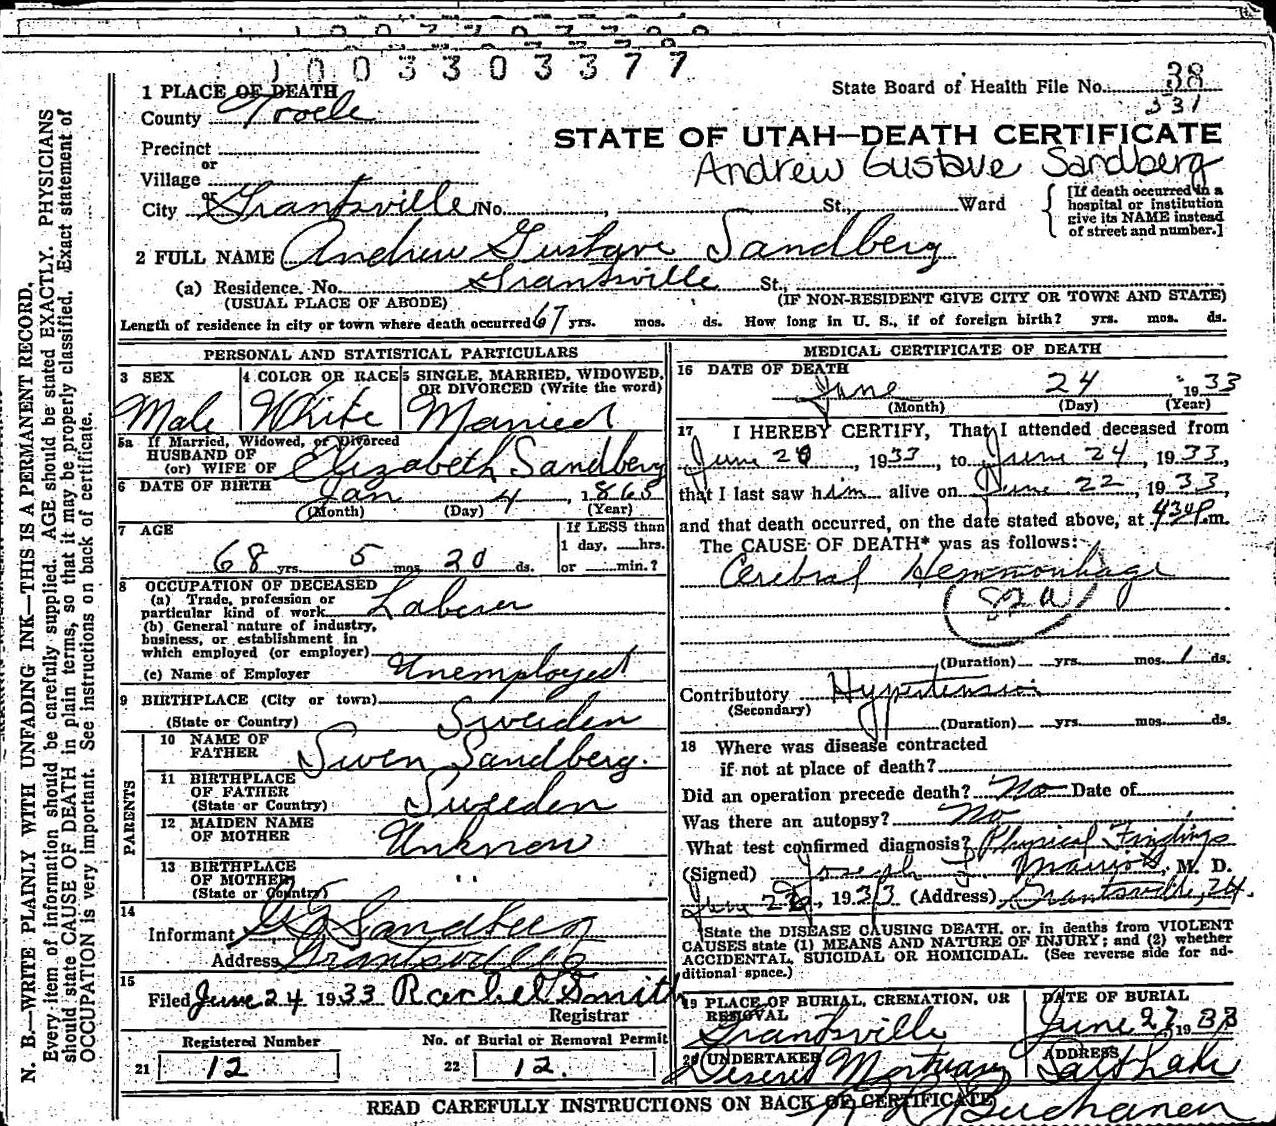 1003303377
State Board of Health File No. 38
331
1 PLACE OF DEATH
County Tooele
STATE OF UTAH—DEATH CERTIFICATE
Precinct
or
Village
Andrew Gustave Sandberg
or
City Grantsville No. , St., Ward
[If death occurred in a
hospital or institution
give its NAME instead
of street and number.]
2 FULL NAME Andrew Gustave Sandberg
(a) Residence. No. Grantsville St.,
(USUAL PLACE OF ABODE) (IF NON-RESIDENT GIVE CITY OR TOWN AND STATE)
Length of residence in city or town where death occurred 67 yrs. mos. ds. How long in U. S., if of foreign birth? yrs. mos. ds.
PERSONAL AND STATISTICAL PARTICULARS
3 SEX
Male
4 COLOR OR RACE
White
5 SINGLE, MARRIED, WIDOWED,
OR DIVORCED (Write the word)
Married
5a If Married, Widowed, or Divorced
HUSBAND OF
(or) WIFE OF Elizabeth Sandberg
6 DATE OF BIRTH
Jan 4, 1865
(Month) (Day) (Year)
7 AGE
68 yrs. 5 mos. 20 ds.
If LESS than
1 day, hrs.
or min.?
8 OCCUPATION OF DECEASED
(a) Trade, profession or
particular kind of work Laborer
(b) General nature of industry,
business, or establishment in
which employed (or employer)
(c) Name of Employer Unemployed
9 BIRTHPLACE (City or town)
(State or Country) Sweden
PARENTS
10 NAME OF
FATHER Swen Sandberg.
11 BIRTHPLACE
OF FATHER
(State or Country) Sweden
12 MAIDEN NAME
OF MOTHER Unknow
13 BIRTHPLACE
OF MOTHER
(State or Country) "
14
Informant Sandberg
Address Grantsville
15
Filed June 24 1933 Rachel Smith
Registrar
Registered Number
21 12
No. of Burial or Removal Permit
22 12.
MEDICAL CERTIFICATE OF DEATH
16 DATE OF DEATH
June 24 1933
(Month) (Day) (Year)
17 I HEREBY CERTIFY, That I attended deceased from
June 20, 1933, to June 24, 1933,
that I last saw him alive on June 22, 1933,
and that death occurred, on the date stated above, at 430 P.m.
The CAUSE OF DEATH* was as follows:
Cerebral Hemmorrhage
82a
(Duration) yrs. mos. 1 ds.
Contributory Hypertension
(Secondary)
(Duration) yrs. mos. ds.
18 Where was disease contracted
if not at place of death?
Did an operation precede death? No Date of
Was there an autopsy? No
What test confirmed diagnosis? Physical Findings
(Signed) Joseph , M. D.
1933 (Address) Grantsville, Ut.
*State the DISEASE CAUSING DEATH, or, in deaths from VIOLENT
CAUSES state (1) MEANS AND NATURE OF INJURY; and (2) whether
ACCIDENTAL, SUICIDAL OR HOMICIDAL. (See reverse side for ad-
ditional space.)
19 PLACE OF BURIAL, CREMATION, OR
REMOVAL
Grantsville
DATE OF BURIAL
June 27, 1933
20 UNDERTAKER
Deseret Mortuary
ADDRESS
Salt Lake
Buchanan
READ CAREFULLY INSTRUCTIONS ON BACK OF CERTIFICATE
N. B.—WRITE PLAINLY WITH UNFADING INK—THIS IS A PERMANENT RECORD.
Every item of information should be carefully supplied. AGE should be stated EXACTLY. PHYSICIANS
should state CAUSE OF DEATH in plain terms, so that it may be properly classified. Exact statement of
OCCUPATION is very important. See instructions on back of certificate.